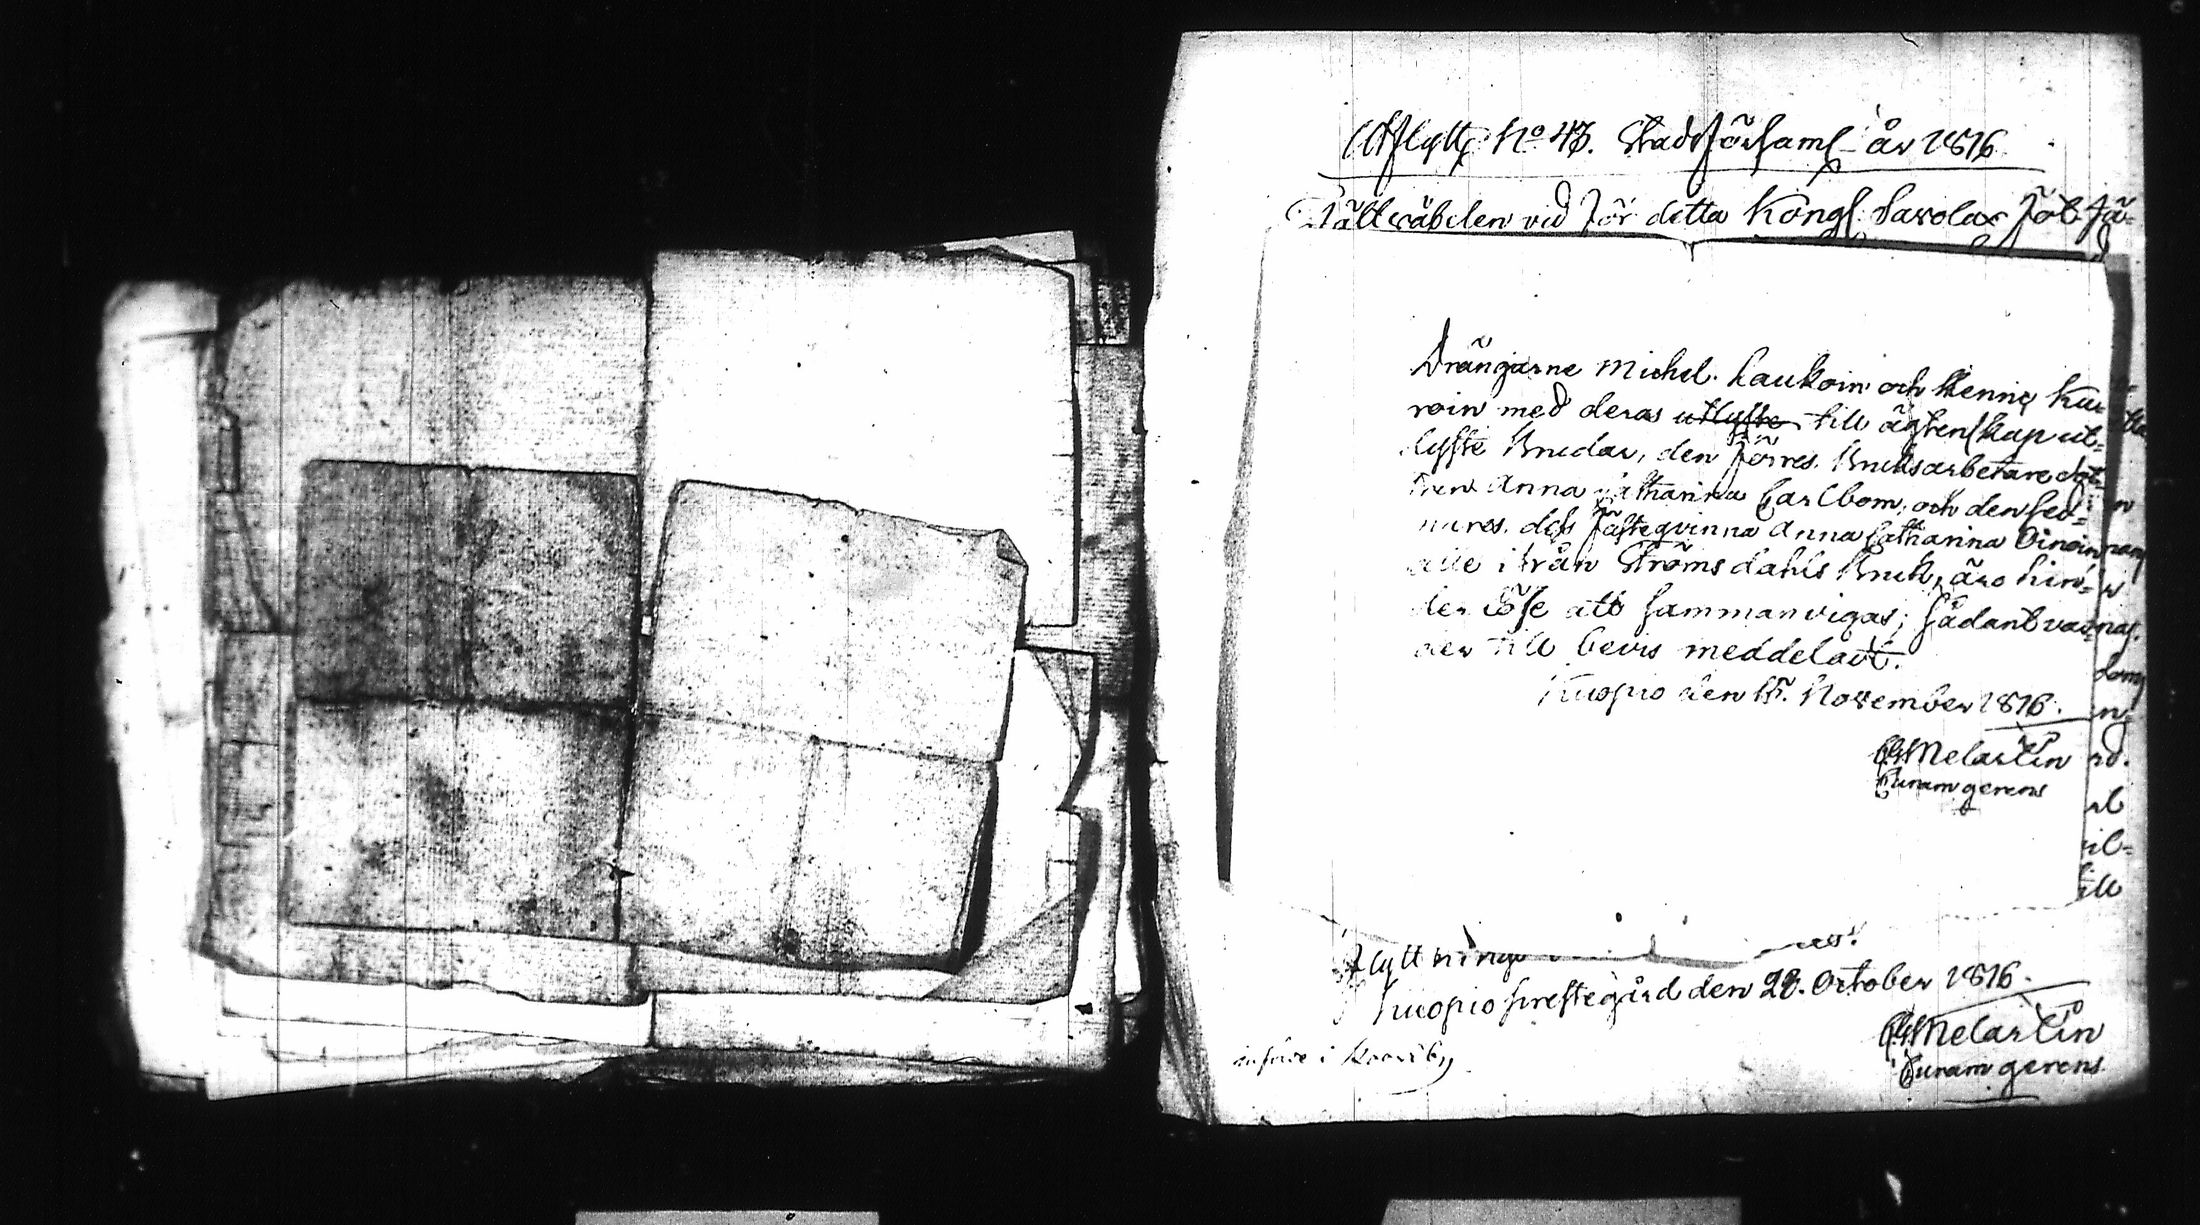 Utflytt. No 43. Stadsförsaml. år 1816
Fältväbelen vid för detta Kongl. Savolax Fot Jä-
Drängarne Michel Laukoin och Henric Kar-
roin med deras utlyste till ägtenskap ut-
lyste Brudar, den förres Bruksarbetare dot-
tren Anna Catharina Carlbom, och den sed-
nares dess fästeqvinna Anna Catharina Oinoin
alle ifrån Strömsdahls Bruk, äro hin-
der löse att sammanvigas; sådant var-
der till bevis meddelat.
Kuopio den 15. November 1816.
Melartin
Curam gerens
Flyttning
Kuopio prestegård den 28. October 1816.
Melartin
Curam gerens
införe i